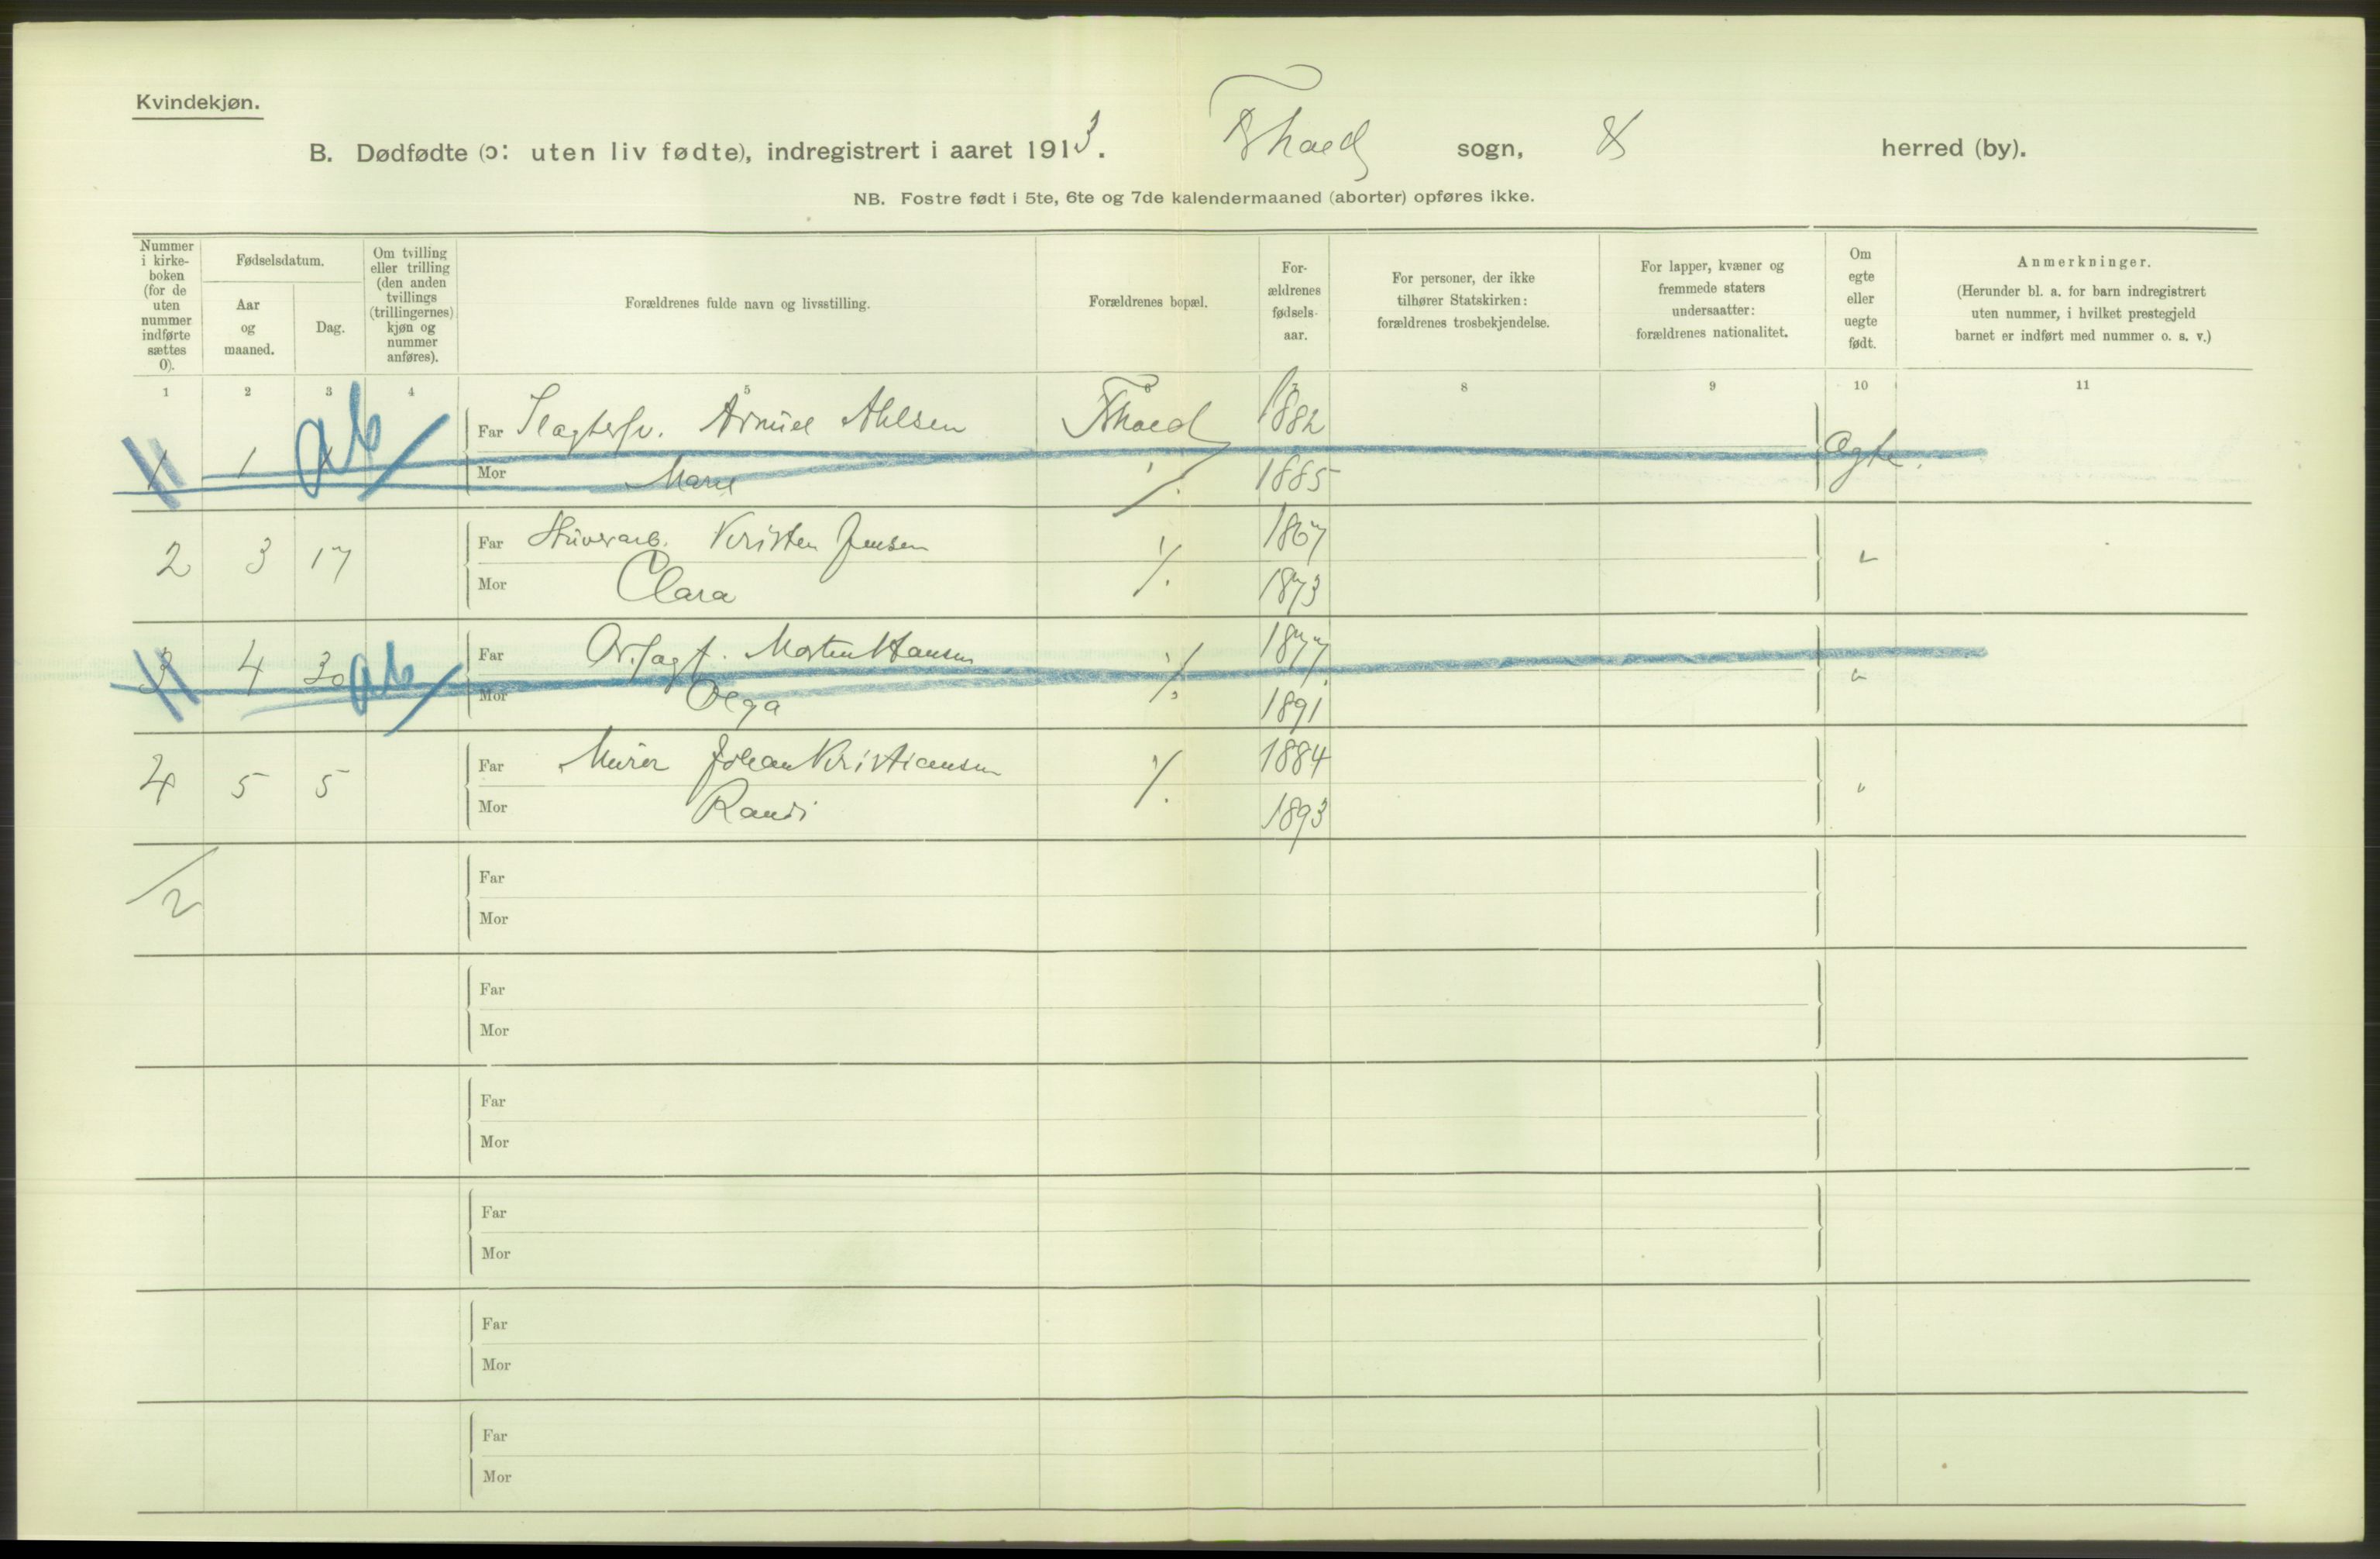 Kvindekjøn.
B. Dødfødte (ɔ: uten liv fødte), indregistrert i aaret 1913. sogn, herred (by).
NB. Fostre født i 5te, 6te og 7de kalendermaaned (aborter) opføres ikke.
Nummer i kirke-boken (for de uten nummer indførte sættes 0).
Fødselsdatum.
Aar og maaned.
Dag.
Om tvilling eller trilling (den anden tvillings (trillingernes) kjøn og nummer anføres).
Forældrenes fulde navn og livsstilling.
Forældrenes bopæl.
For-ældrenes fødsels-aar.
For personer, der ikke tilhører Statskirken: forældrenes trosbekjendelse.
For lapper, kvæner og fremmede staters undersaatter: forældrenes nationalitet.
Om egte eller uegte født.
Anmerkninger.
(Herunder bl. a. for barn indregistrert uten nummer, i hvilket prestegjeld barnet er indført med nummer o. s. v.)
1 2 3 4 5 6 7 8 9 10 11
1 1 ab Far Ahlsen 1882 Ægte.
Mor Marie 1885
2 3 17 Far Kristen Jensen 1867
Mor Clara 1873
3 4 30 ab Far Morten Hansen 1877
Mor Olga 1891
4 5 5 Far Murer Johan Kristiansen 1884
Mor Randi 1893
2
Far
Mor
Far
Mor
Far
Mor
Far
Mor
Far
Mor
Far
Mor